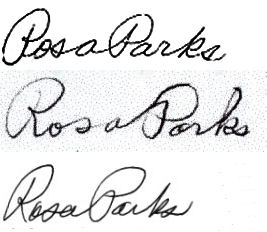 Rosa Parks
Rosa Parks
Rosa Parks